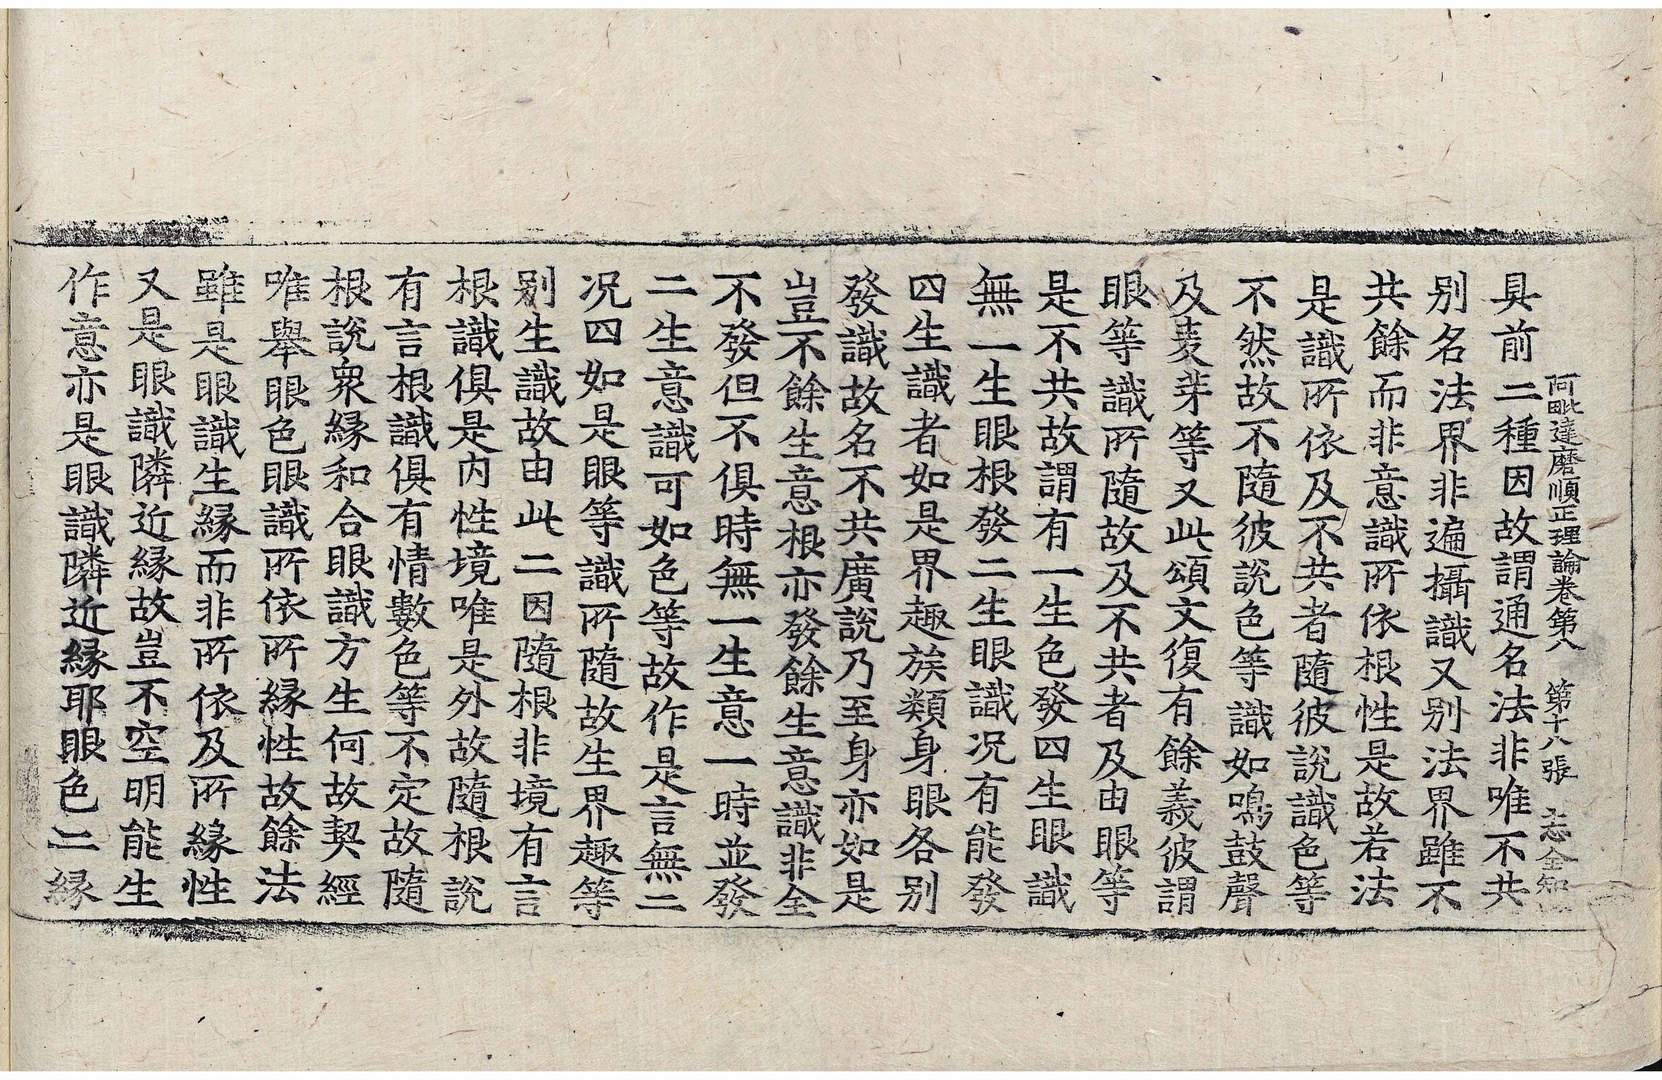 阿毗達磨順正理論卷第八 第十八張 志
具前二種因故謂通名法非唯不共
別名法界非遍攝識又別法界雖不
共餘而非意識所依根性是故若法
是識所依及不共者隨彼說識色等
不然故不隨彼說色等識如鳴鼓聲
及麦芽等又此頌文復有餘義彼謂
眼等識所隨故及不共者及由眼等
是不共故謂有一生色發四生眼識
無一生眼根發二生眼識况有能發
四生識者如是界趣族類身眼各別
發識故名不共廣說乃至身亦如是
豈不餘生意根亦發餘生意識非全
不發但不俱時無一生意一時並發
二生意識可如色等故作是言無二
况四如是眼等識所隨故生界趣等
別生識故由此二因隨根非境有言
根識俱是內性境唯是外故隨根說
有言根識俱有情數色等不定故隨
根說衆緣和合眼識方生何故契經
唯舉眼色眼識所依所緣性故餘法
雖是眼識生緣而非所依及所緣性
又是眼識隣近緣故豈不空明能生
作意亦是眼識隣近緣耶眼色二緣